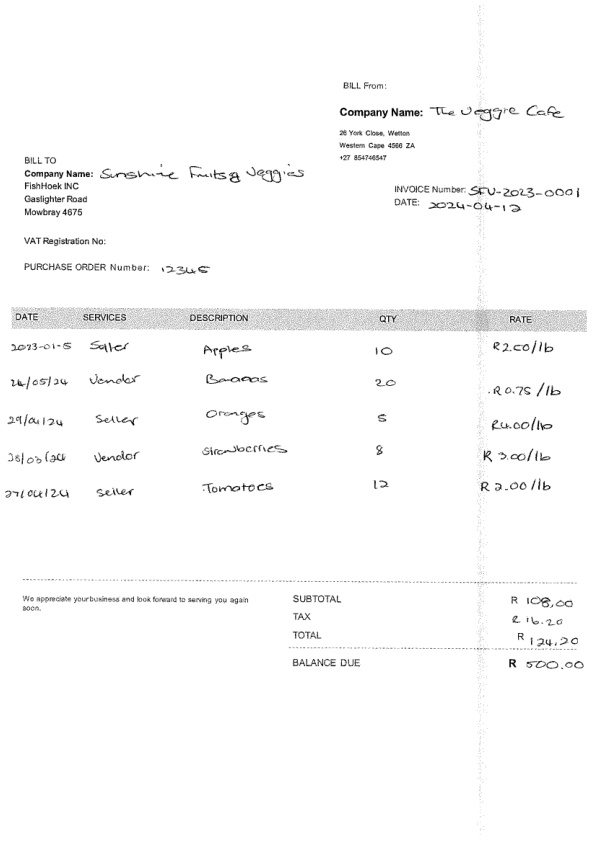 BILL From:
Company Name: The Veggie Cafe
26 York Close, Wetton
Western Cape 4566 ZA
+27 854746547
BILL TO
Company Name: Sunshine Fruits & Veggies
FishHoek INC
Gaslighter Road
Mowbray 4675
INVOICE Number: SFV-2023-0001
DATE: 2024-04-12
VAT Registration No:
PURCHASE ORDER Number: 12345
DATE SERVICES DESCRIPTION QTY RATE
2023-01-5 Apples 10 R2.00/lb
24/05/24 Vendor Bananas 20 R0.75/lb
29/01/24 Seller Oranges 5 R4.00/lb
28/03/24 Vendor Strawberries 8 R 3.00/lb
27/04/24 Seller Tomatoes 12 R 2.00/lb
We appreciate your business and look forward to serving you again
soon.
SUBTOTAL R 108,00
TAX R 16.20
TOTAL R 124,20
BALANCE DUE R 500.00